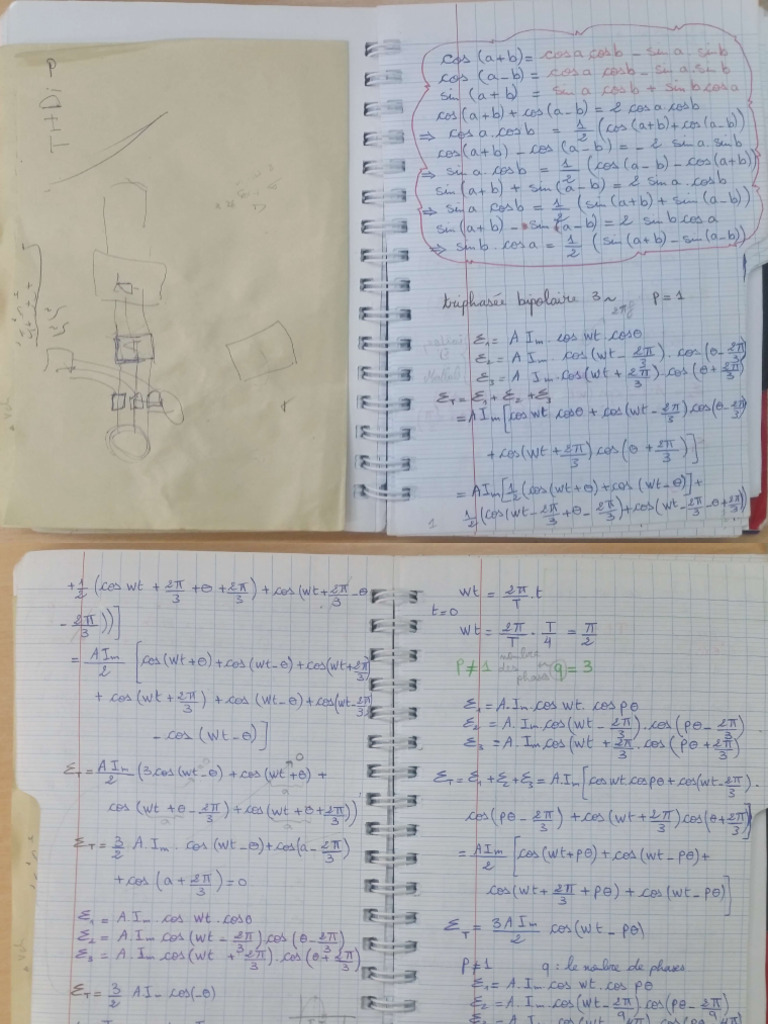 THDi
cos(a+b) = cosa cosb - sina sinb
cos(a-b) = cosa cosb - sina.sinb
sin(a+b) = sina cosb + sinb cosa
cos(a+b) + cos(a-b) = 2 cosa.cosb
⇒ cosa.cosb = 1/2 (cos(a+b) + cos(a-b))
cos(a+b) - cos(a-b) = -2 sina.sinb
⇒ sina.cosb = 1/2 (cos(a-b) - cos(a+b))
sin(a+b) + sin(a-b) = 2 sina.cosb
⇒ sina cosb = 1/2 (sin(a+b) + sin(a-b))
sin(a+b) - sin(a-b) = 2 sinb cosa
⇒ sinb.cosa = 1/2 (sin(a+b) - sin(a-b))
triphasée bipolaire 3~ 2πf P=1
ε1 = A Im. cos wt. cosθ
ε2 = A Im. cos(wt - 2π/3). cos(θ - 2π/3)
ε3 = A Im.cos(wt + 2π/3).cos(θ + 2π/3)
εT = ε1 + ε2 + ε3
= A Im [cos wt cosθ + cos(wt - 2π/3) cos(θ - 2π/3)
+ cos(wt + 2π/3) cos(θ + 2π/3)]
= A Im [1/2 (cos(wt+θ) + cos(wt-θ)] +
1/2 (cos(wt - 2π/3 + θ - 2π/3) + cos(wt - 2π/3 - θ + 2π/3))
1
+ 1/2 (cos wt + 2π/3 + θ + 2π/3) + cos(wt + 2π/3 - θ
- 2π/3))]
= A Im/2 [cos(wt+θ) + cos(wt-θ) + cos(wt + 2π/3)
+ cos(wt + 2π/3) + cos(wt-θ) + cos(wt - 2π/3)
- cos(wt-θ)]
εT = A Im/2 (3.cos(wt-θ) + cos(wt+θ) + 0
cos(wt + θ - 2π/3) + cos(wt + θ + 2π/3))
εT = 3/2 A.Im. cos(wt-θ) + cos(a - 2π/3)
+ cos(a + 2π/3) = 0
ε1 = A.Im cos wt. cosθ
ε2 = A.Im cos(wt - 2π/3) cos(θ - 2π/3)
ε3 = A.Im cos(wt + 2π/3). cos(θ + 2π/3)
εT = 3/2 A Im cos(-θ)
wt = 2π/T . t
t=0
wt = 2π/T . T/4 = π/2
P≠1 nombre des phases q = 3
ε1 = A.Im cos wt. cos pθ
ε2 = A.Im cos(wt - 2π/3). cos(pθ - 2π/3)
ε3 = A.Im cos(wt + 2π/3. cos(pθ + 2π/3)
εT = ε1 + ε2 + ε3 = A.Im [cos wt.cos pθ + cos(wt - 2π/3).
cos(pθ - 2π/3) + cos(wt + 2π/3) cos(θ + 2π/3)]
= A Im/2 [cos(wt+pθ) + cos(wt-pθ) +
cos(wt + 2π/3 + pθ) + cos(wt-pθ)]
εT = 3A Im/2 cos(wt-pθ)
P≠1 q : le nombre de phases
ε1 = A Im cos wt cos pθ
ε2 = A Im cos(wt - 2π/q) cos(pθ - 2π/q)